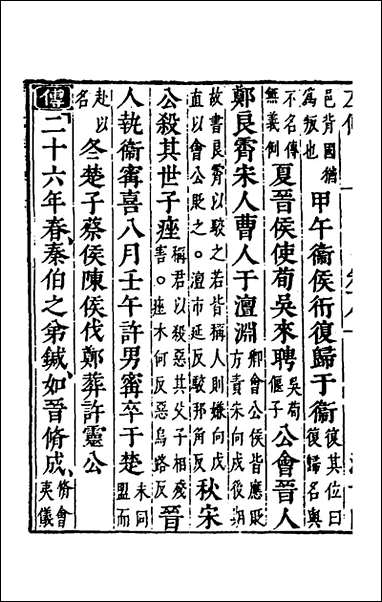 邑背國猶爲叛也甲午衞侯衎復歸于衞復其位曰復歸名與
不名傳無義例夏晉侯使荀吳來聘吳荀偃子公會晉人
鄭良霄宋人曹人于澶淵卿會公侯皆應貶方責宋向戌後期
故書良霄以駮之若皆稱人則嫌向戌直以會公貶之。澶市延反駮邦角反秋宋
公殺其世子痤稱君以殺惡其父子相殘害。痤才何反惡烏路反晉
人執衞甯喜八月壬午許男甯卒于楚未同盟而
赴以名冬楚子蔡侯陳侯伐鄭葬許靈公
傳二十六年春、秦伯之弟鍼、如晉脩成、脩會夷儀